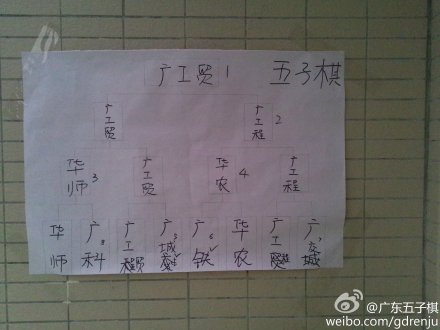 广工贸1 五子棋
广工贸 广工程2
华师3 广工贸 华农4 广工程
华师 广科8 广工贸 广城建5 广铁6 华农 广工程 广城7
@广东五子棋
weibo.com/gdrenju